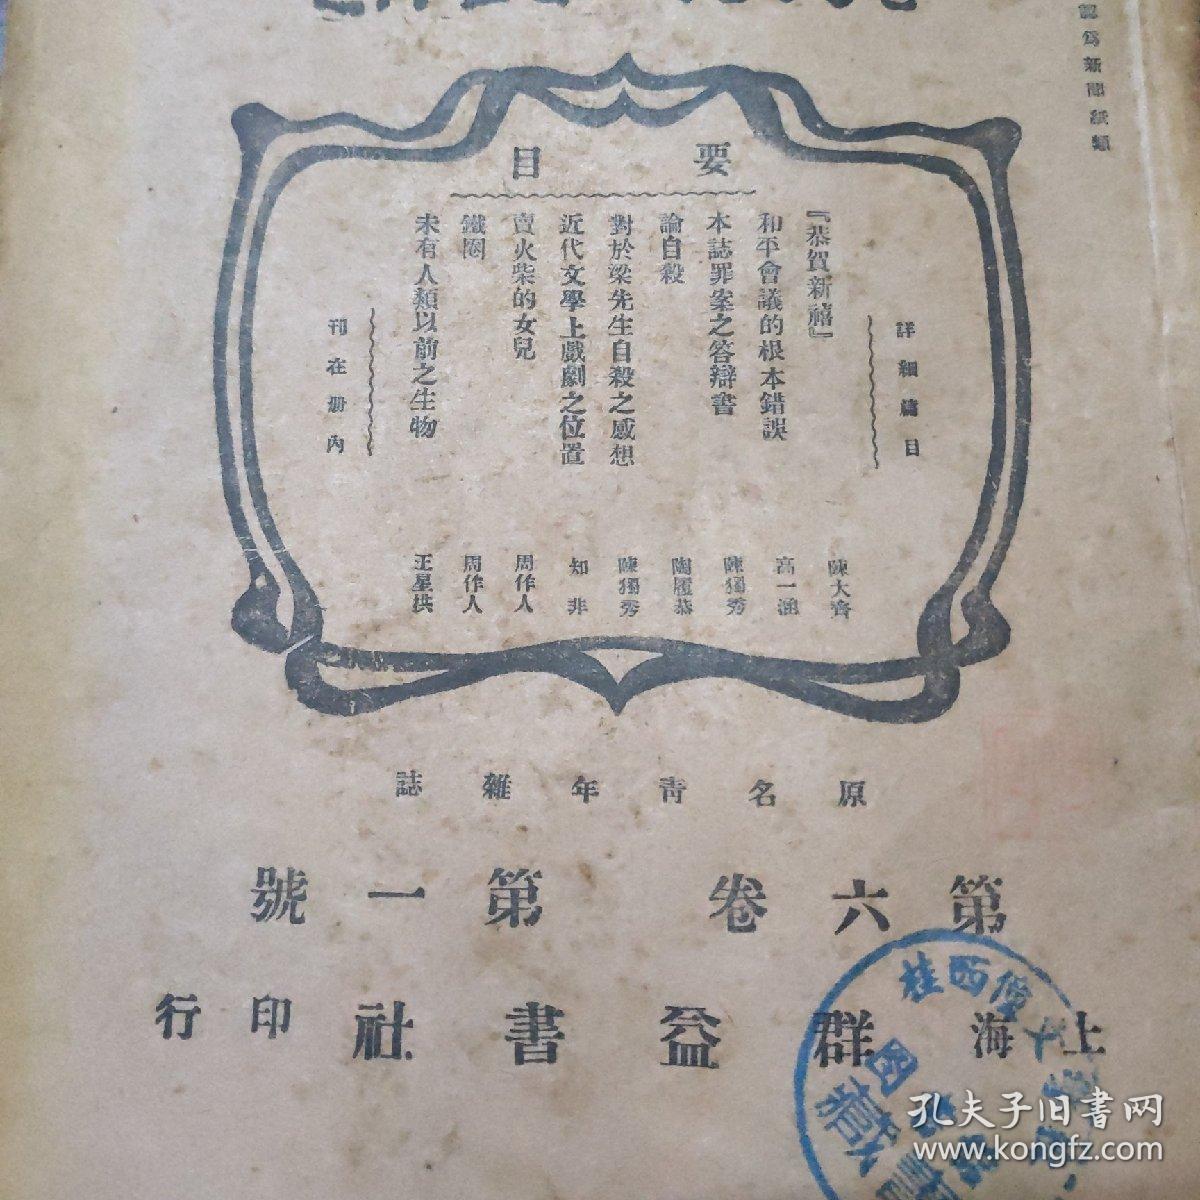 認爲新聞紙類
要目
詳細篇目
『恭賀新禧』 陳大齊
和平會議的根本錯誤 高一涵
本誌罪案之答辯書 陳獨秀
論自殺 陶履恭
對於梁先生自殺之感想 陳獨秀
近代文學上戲劇之位置 知非
賣火柴的女兒 周作人
鐵圈 周作人
未有人類以前之生物 王星拱
刊在册內
原名青年雜誌
第六卷第一號
上海羣益書社印行
桂西
圖
孔夫子旧书网
www.kongfz.com